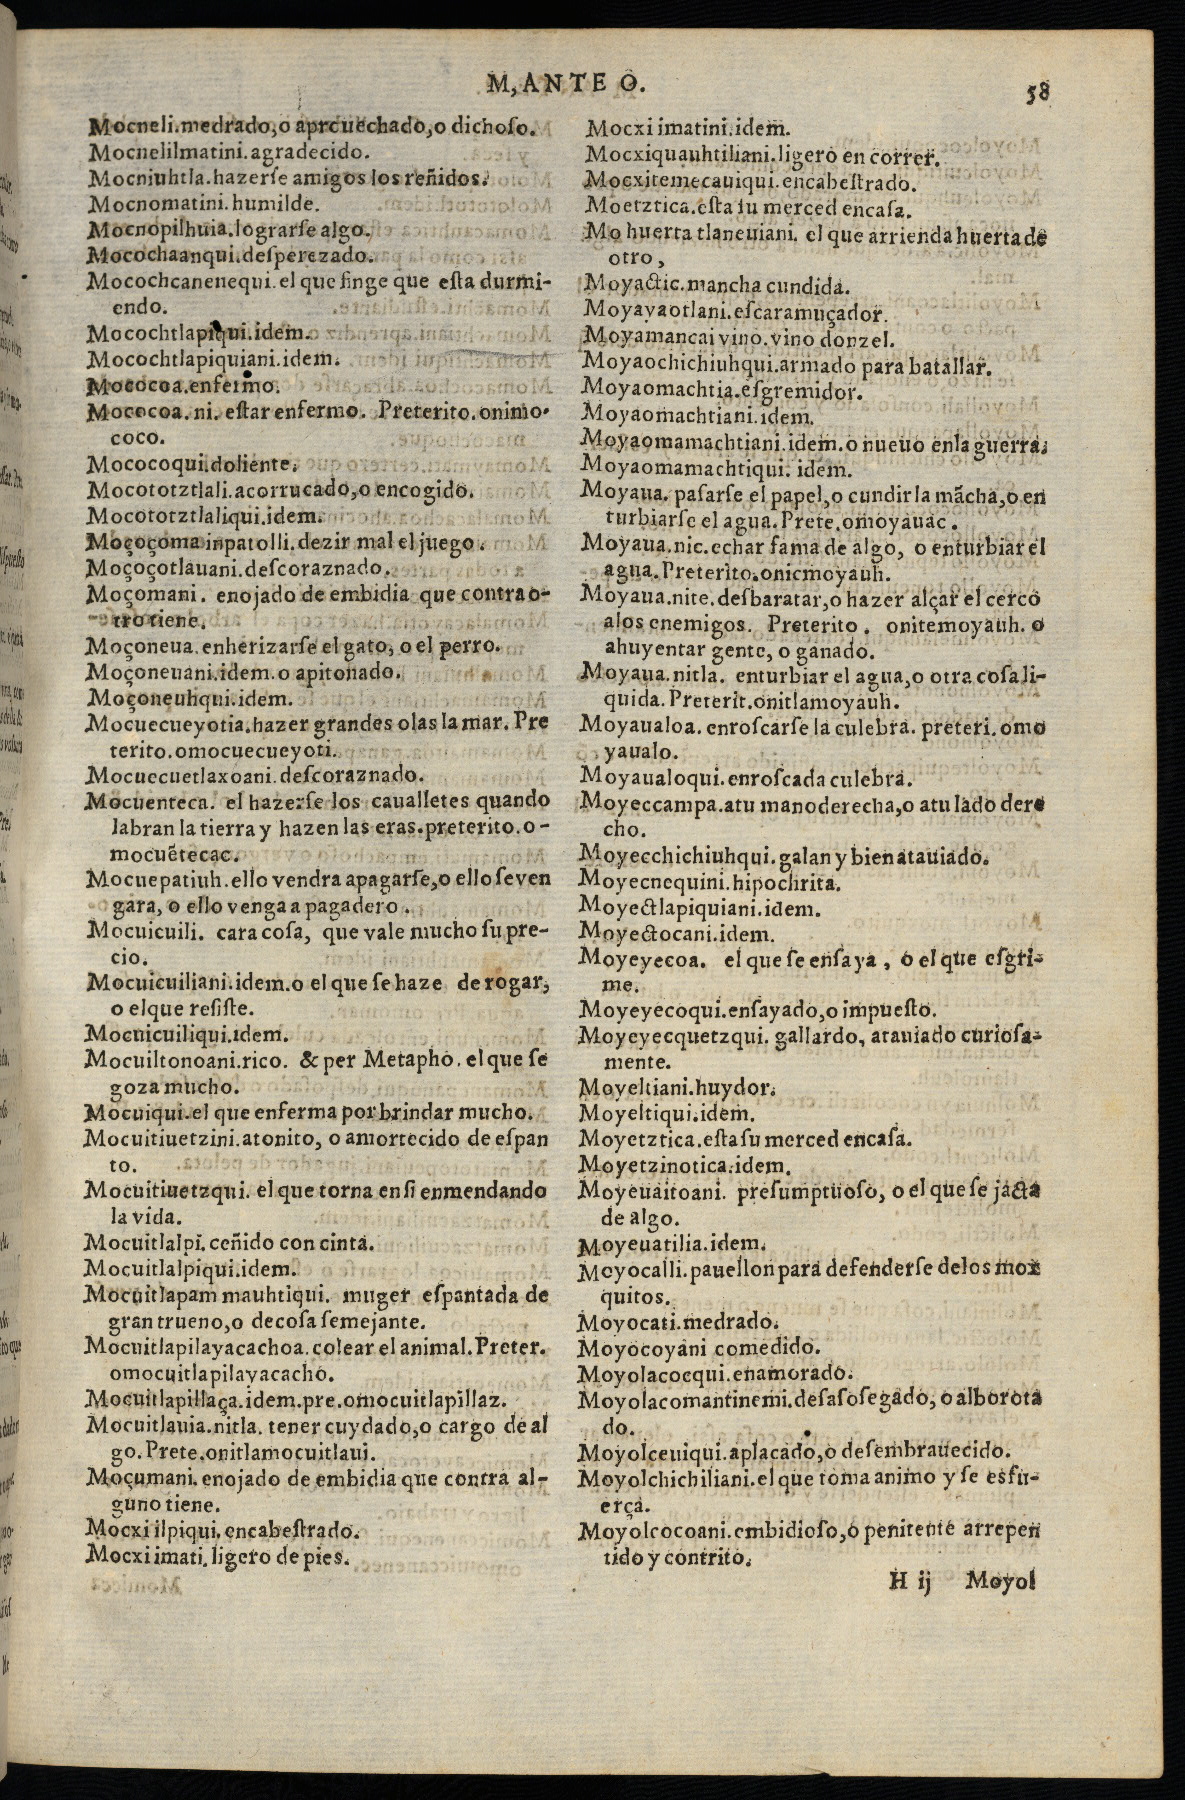 M, ANTE O.
58
Mocneli.medrado,o aprouechado,o dichoso.
Mocnelilmatini.agradecido.
Mocniuhtla.hazerse amigos los reñidos.
Mocnomatini.humilde.
Mocnopilhuia.lograrse algo.
Mocochaanqui.desperezado.
Mocochcanenequi.el que finge que esta durmi-
endo.
Mocochtlapiqui.idem.
Mocochtlapiquiani.idem.
Mococoa.enfermo.
Mococoa.ni. estar enfermo. Preterito.onimo-
coco.
Mococoqui.doliente.
Mocototztlali.acorrucado,o encogido.
Mocototztlaliqui.idem.
Moçoçoma inpatolli.dezir mal el juego.
Moçoçotlauani.descoraznado.
Moçomani. enojado de embidia que contra o-
tro tiene.
Moçoneua.enherizarse el gato, o el perro.
Moçoneuani.idem.o apitonado.
Moçoneuhqui.idem.
Mocuecueyotia.hazer grandes olas la mar. Pre
terito.omocuecueyoti.
Mocuecuetlaxoani.descoraznado.
Mocuenteca. el hazerse los caualletes quando
labran la tierra y hazen las eras.preterito.o-
mocuẽtecac.
Mocuepatiuh.ello vendra apagarse,o ello se ven
gara, o ello venga a pagadero.
Mocuicuili. cara cosa, que vale mucho su pre-
cio.
Mocuicuiliani.idem.o el que se haze de rogar,
o elque resiste.
Mocuicuiliqui.idem.
Mocuiltonoani.rico. & per Metapho. el que se
goza mucho.
Mocuiqui.el que enferma por brindar mucho.
Mocuitiuetzini.atonito, o amortecido de espan
to.
Mocuitiuetzqui. el que torna ensi enmendando
la vida.
Mocuitlalpi.ceñido con cinta.
Mocuitlalpiqui.idem.
Mocuitlapam mauhtiqui. muger espantada de
gran trueno,o de cosa semejante.
Mocuitlapilayacachoa.colear el animal.Preter.
omocuitlapilayacacho.
Mocuitlapillaça.idem.pre.omocuitlapillaz.
Mocuitlauia.nitla. tener cuydado,o cargo de al
go.Prete.onitlamocuitlaui.
Moçumani.enojado de embidia que contra al-
guno tiene.
Mocxi ilpiqui.encabestrado.
Mocxi imati.ligero de pies.
Mocxi imatini.idem.
Mocxiquauhtiliani.ligero en correr.
Mocxitemecauiqui.encabestrado.
Moetztica.esta su merced encasa.
Mo huerta tlaneuiani. el que arrienda huerta de
otro,
Moyactic.mancha cundida.
Moyayaotlani.escaramuçador.
Moyamancai vino.vino donzel.
Moyaochichiuhqui.armado para batallar.
Moyaomachtia.esgremidor.
Moyaomachtiani.idem.
Moyaomamachtiani.idem.o nueuo enla guerra.
Moyaomamachtiqui. idem.
Moyaua. pasarse el papel,o cundir la mãcha,o en
turbiarse el agua.Prete.omoyauac.
Moyaua.nic.echar fama de algo, o enturbiar el
agua.Preterito.onicmoyauh.
Moyaua.nite.desbaratar,o hazer alçar el cerco
alos enemigos. Preterito. onitemoyauh. o
ahuyentar gente, o ganado.
Moyaua.nitla. enturbiar el agua,o otra cosa li-
quida.Preterit.onitlamoyauh.
Moyaualoa.enroscarse la culebra. preteri.omo
yaualo.
Moyaualoqui.enroscada culebra.
Moyeccampa.atu mano derecha,o atu lado dere
cho.
Moyecchichiuhqui.galan y bien atauiado.
Moyecnequini.hipochrita.
Moyectlapiquiani.idem.
Moyectocani.idem.
Moyeyecoa. el que se ensaya, o el que esgri-
me.
Moyeyecoqui.ensayado,o impuesto.
Moyeyecquetzqui. gallardo, atauiado curiosa-
mente.
Moyeltiani.huydor.
Moyeltiqui.idem.
Moyetztica.esta su merced encasa.
Moyetzinotica.idem.
Moyeuaitoani. presumptuoso, o el que se jacta
de algo.
Moyeuatilia.idem.
Moyocalli.pauellon para defenderse delos mox
quitos.
Moyocati.medrado.
Moyocoyani comedido.
Moyolacocqui.enamorado.
Moyolacomantinemi.desasosegado, o alborota
do.
Moyolceuiqui.aplacado,o desembrauecido.
Moyolchichiliani.el que toma animo y se esfu-
erça.
Moyolcocoani.embidioso,o penitente arrepen
tido y contrito.
H ij Moyol